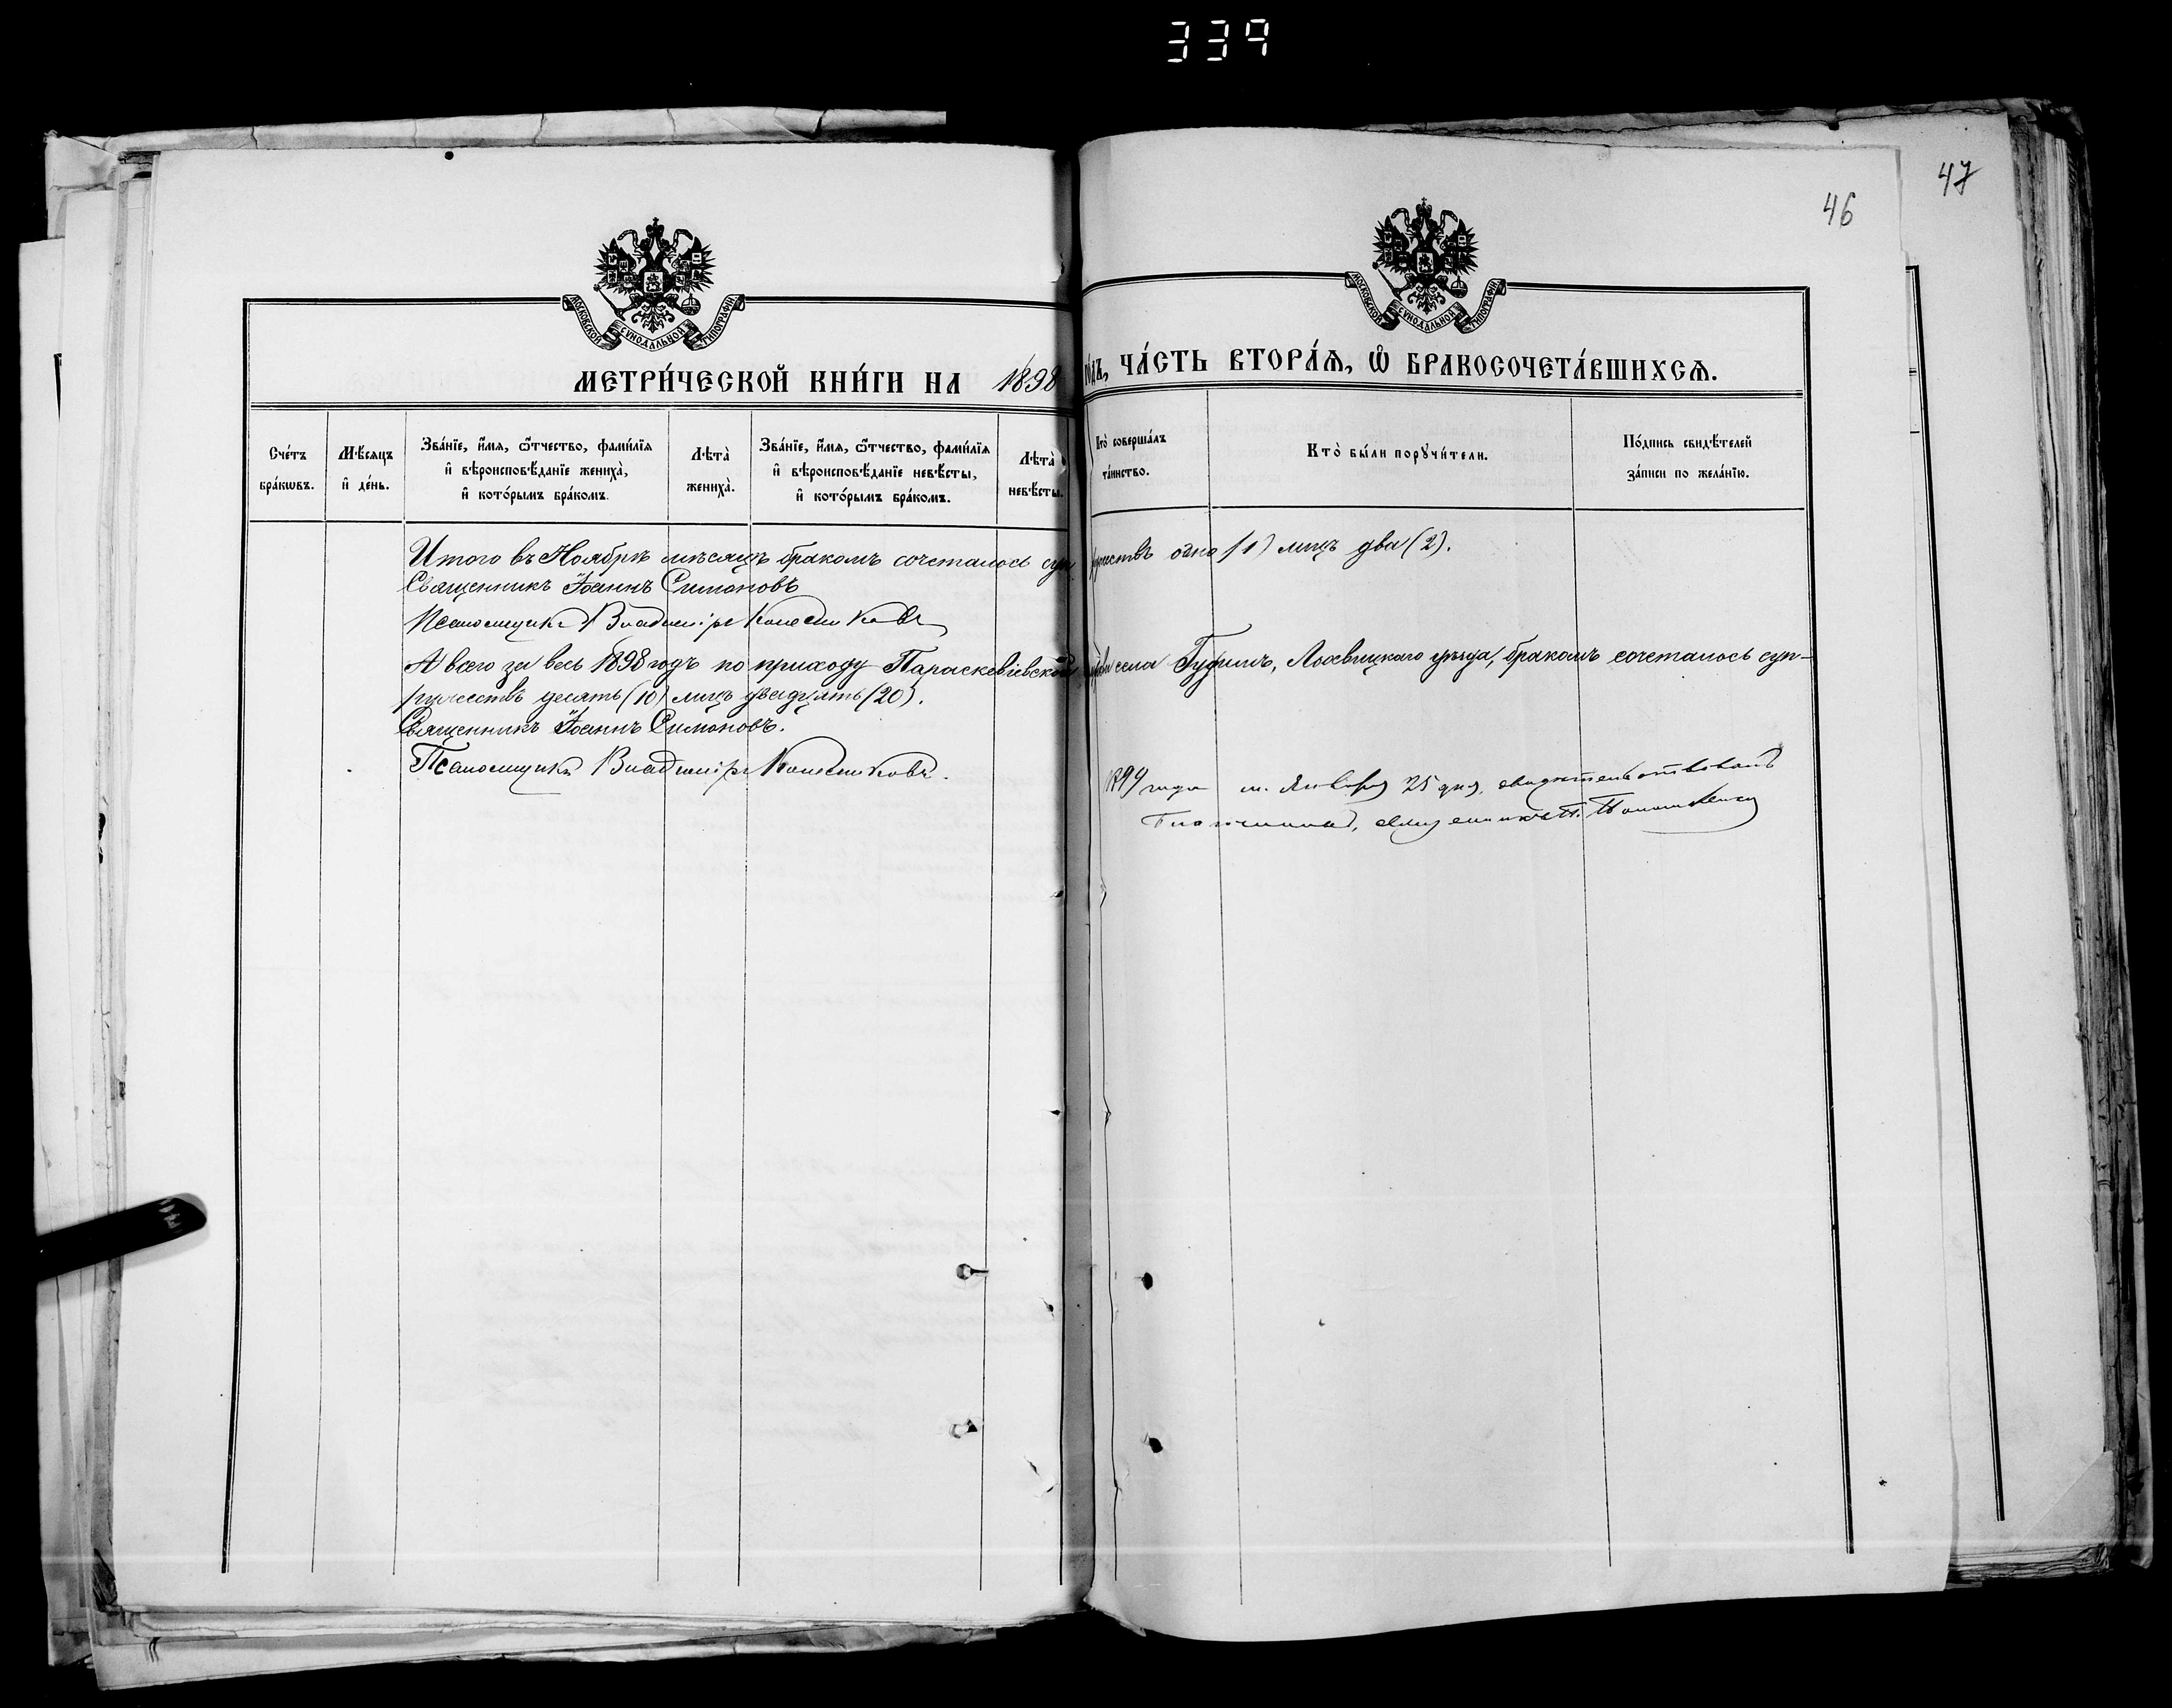 339
47
46
МОСКОВСКОЙ СУНОДАЛЬНОЙ ТИПОГРАФІИ
МОСКОВСКОЙ СУНОДАЛЬНОЙ ТИПОГРАФІИ
МЕТРИ́ЧЕСКОЙ КНИ́ГИ НА 1898 го́дъ, ЧА́СТЬ ВТОРА́Ѧ, Ѽ БРАКОСОЧЕТА́ВШИХСѦ.
Сче́тъ бра́кѡвъ.
Мѣ́сяцъ и҆ де́нь.
Зва́нїе, и҆́мя, ѻ҆́тчество, фами́лїя и҆ вѣроисповѣ́данїе жениха̀, и҆ кото́рымъ бра́комъ.
Лѣта̀ жениха̀.
Зва́нїе, и҆́мя, ѻ҆́тчество, фами́лїя и҆ вѣроисповѣ́данїе невѣ́сты, и҆ кото́рымъ бра́комъ.
Лѣта̀ невѣ́сты.
Кто̀ соверша́лъ та́инство.
Кто̀ бы́ли порꙋчи́тели.
По́дпись свидѣ́телей за́писи по жела́нїю.
Итого въ Ноябрѣ мѣсяцѣ бракомъ сочеталось супружествъ одно (1) лицъ два (2).
Священникъ Іоаннъ Симоновъ
Псаломщикъ Владиміръ Колесниковъ
А всего за весь 1898 годъ по приходу Параскевіевской села Лохвицкаго уѣзда, бракомъ сочеталось суп-
ружествъ десять (10) лицъ двадцать (20).
Священникъ Іоаннъ Симоновъ.
Псаломщикъ Владиміръ Колесниковъ.
1899 года м. Января 25 дня, свидѣтельствовалъ
Благочинный, священникъ